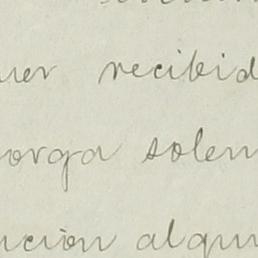 uer recibid
orga solem
ncion algun